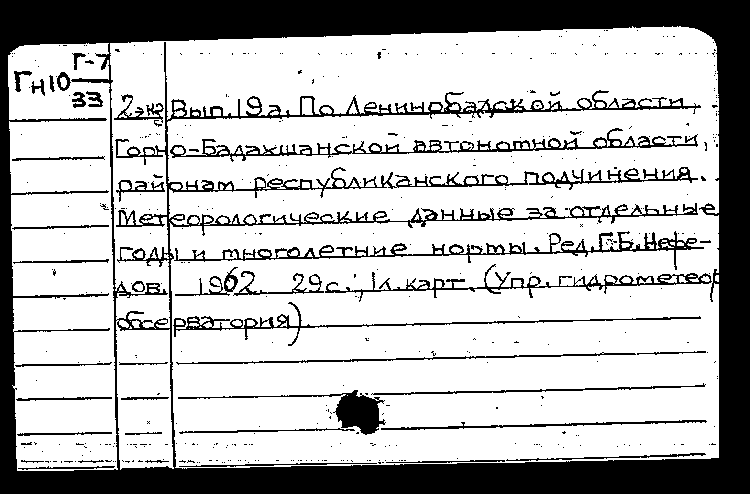 Гн10 Г-7
33
2экз Вып.19а. По Ленинобадской области,
Горно-Бадахшанской автономной области,
районам республиканского подчинения.
Метеорологические данные за отдельные
годы и многолетние нормы. Ред. Г.Б. Нефе-
дов. 1962. 29с.; 1л. карт. (Упр. гидрометеор
обсерватория)